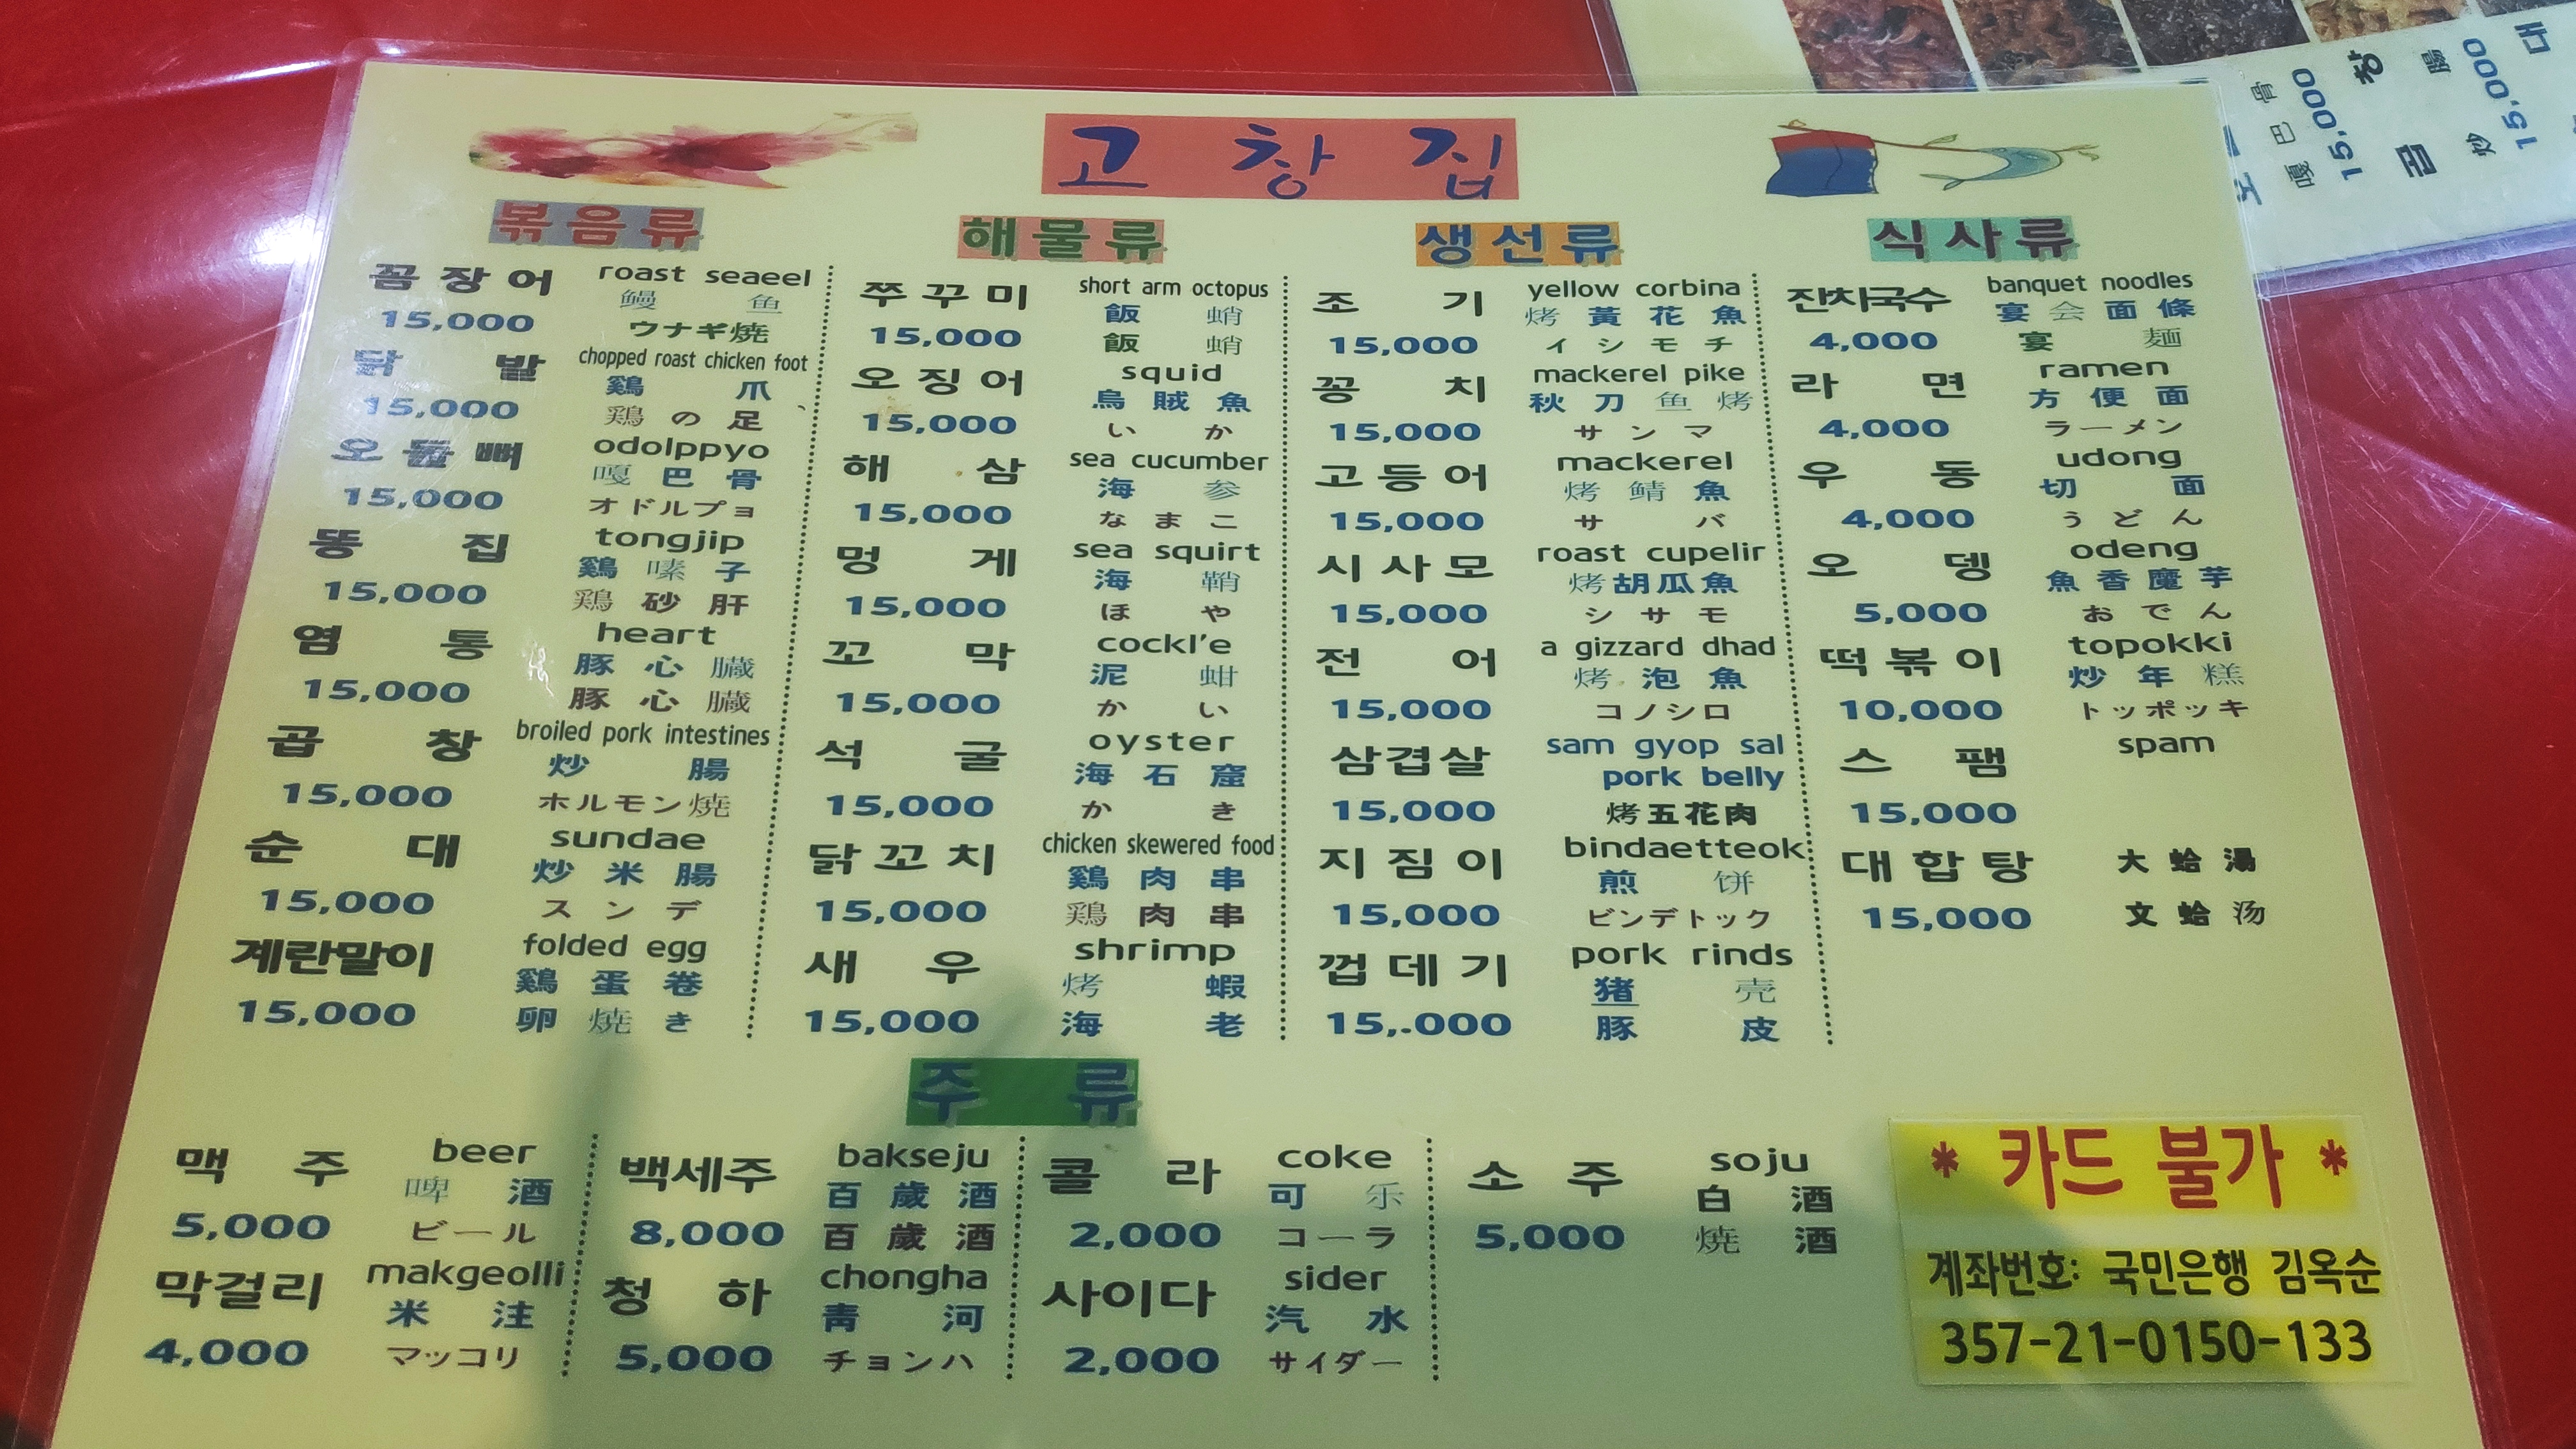 고창집
볶음류
꼼장어 roast seaeel
鳗鱼
15,000 ウナギ焼
닭발 chopped roast chicken foot
鷄爪
15,000 鶏の足
오돌뼈 odolppyo
嘎巴骨
15,000 オドルプョ
똥집 tongjip
鷄嗉子
15,000 鶏砂肝
염통 heart
豚心臓
15,000 豚心臓
곱창 broiled pork intestines
炒腸
15,000 ホルモン焼
순대 sundae
炒米腸
15,000 スンデ
계란말이 folded egg
鷄蛋卷
15,000 卵焼き
해물류
쭈꾸미 short arm octopus
飯蛸
15,000 飯蛸
오징어 squid
烏賊魚
15,000 いか
해삼 sea cucumber
海参
15,000 なまこ
멍게 sea squirt
海鞘
15,000 ほや
꼬막 cockl'e
泥蚶
15,000 かい
석굴 oyster
海石窟
15,000 かき
닭꼬치 chicken skewered food
鷄肉串
15,000 鶏肉串
새우 shrimp
烤蝦
15,000 海老
생선류
조기 yellow corbina
烤黃花魚
15,000 イシモチ
꽁치 mackerel pike
秋刀鱼烤
15,000 サンマ
고등어 mackerel
烤鯖魚
15,000 サバ
시사모 roast cupelir
烤胡瓜魚
15,000 シサモ
전어 a gizzard dhad
烤泡魚
15,000 コノシロ
삼겹살 sam gyop sal
pork belly
15,000 烤五花肉
지짐이 bindaetteok
煎饼
15,000 ビンデトック
껍데기 pork rinds
猪壳
15,.000 豚皮
식사류
잔치국수 banquet noodles
宴会面條
4,000 宴麺
라면 ramen
方便面
4,000 ラーメン
우동 udong
切面
4,000 うどん
오뎅 odeng
魚香魔芋
5,000 おでん
떡볶이 topokki
炒年糕
10,000 トッポッキ
스팸 spam
15,000
대합탕 大蛤湯
15,000 文蛤汤
주류
맥주 beer
啤酒
5,000 ビール
막걸리 makgeolli
米注
4,000 マッコリ
백세주 bakseju
百歲酒
8,000 百歲酒
청하 chongha
青河
5,000 チョンハ
콜라 coke
可乐
2,000 コーラ
사이다 sider
汽水
2,000 サイダー
소주 soju
白酒
5,000 焼酒
* 카드 불가 *
계좌번호: 국민은행 김옥순
357-21-0150-133
嘎巴骨
15,000
곱창
炒腸
15,000
대